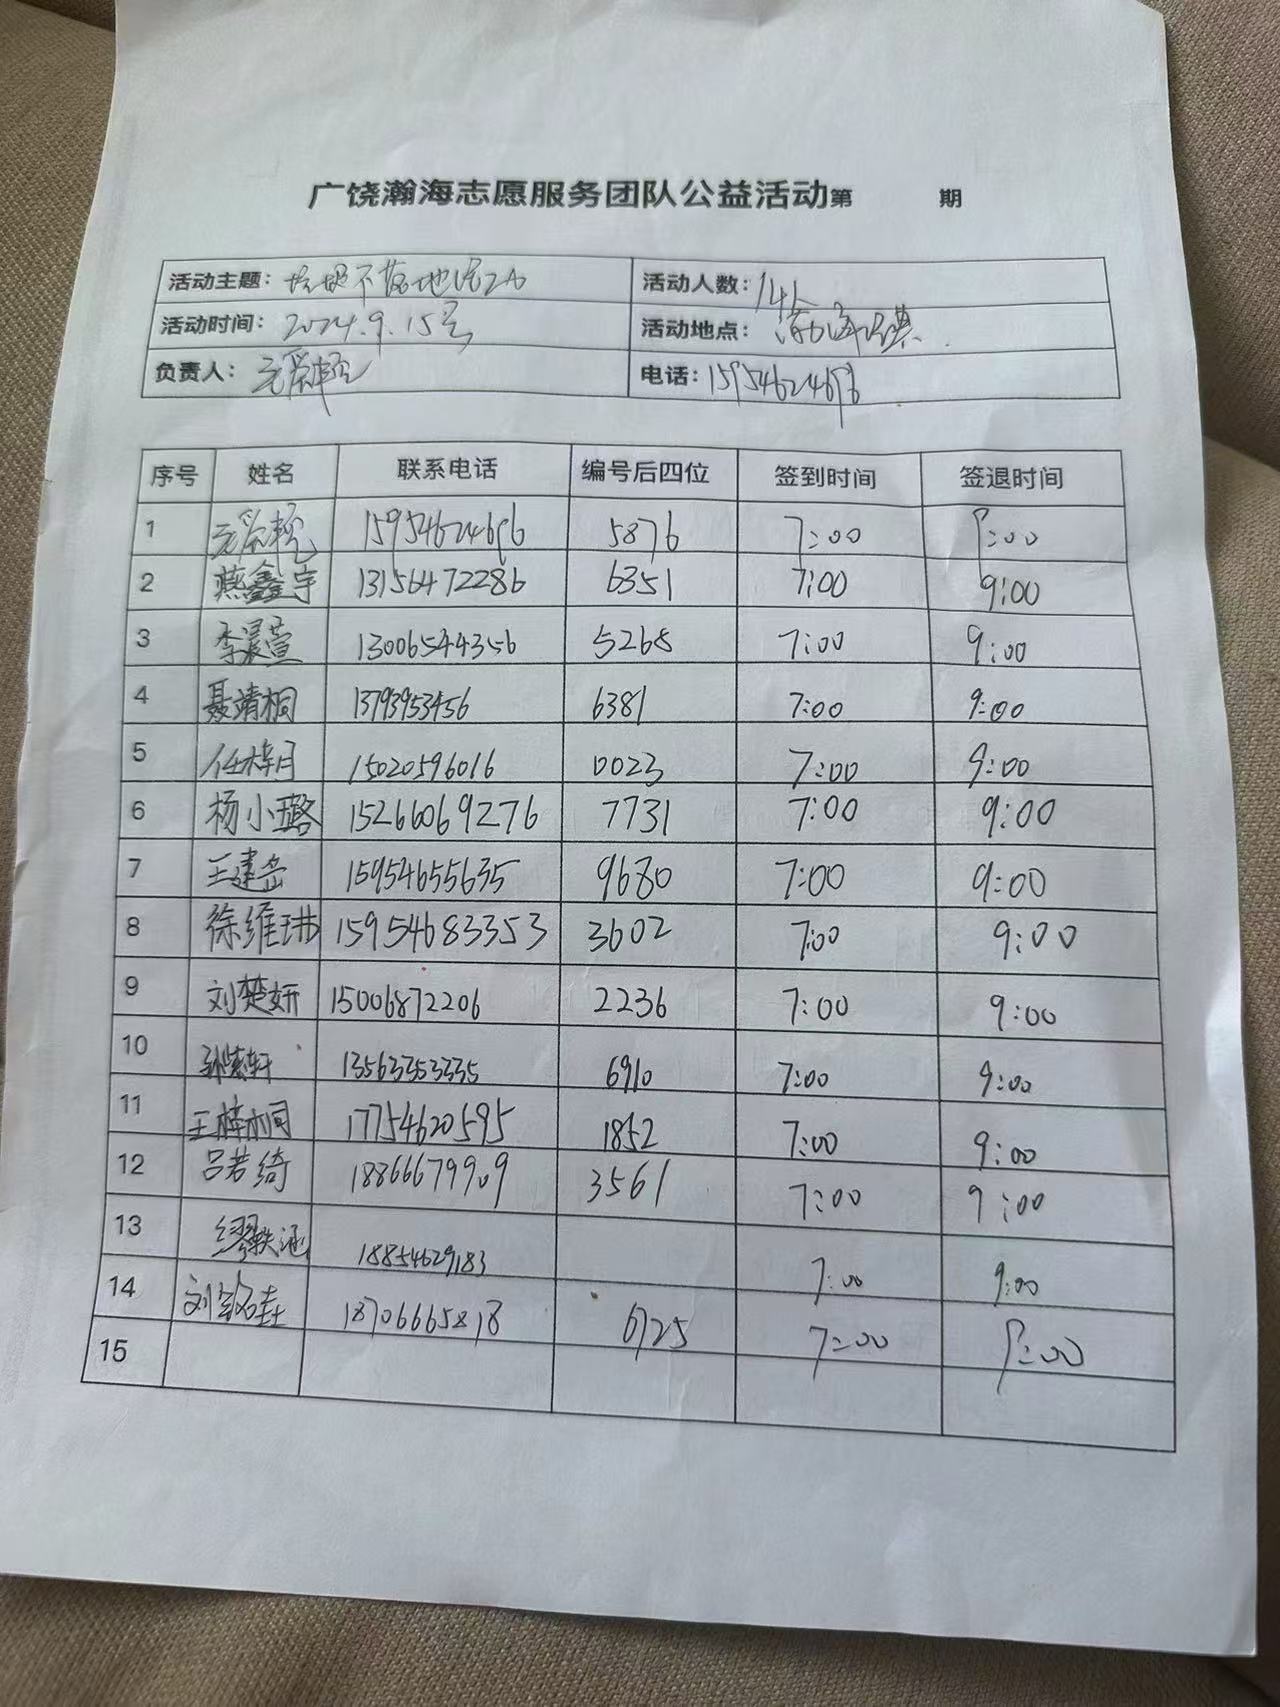 广饶瀚海志愿服务团队公益活动第 期
活动主题: 垃圾不落地 活动人数: 14人
活动时间: 2024.9.15号 活动地点:
负责人: 电话: 15954624696
序号 姓名 联系电话 编号后四位 签到时间 签退时间
1 15954624696 5876 7:00 9:00
2 燕鑫宇 13156472286 6351 7:00 9:00
3 李晨萱 13006544356 5268 7:00 9:00
4 聂靖桐 13793953456 6381 7:00 9:00
5 任梓月 15020596016 0023 7:00 9:00
6 杨小璐 15266069276 7731 7:00 9:00
7 王建岳 15954655635 9680 7:00 9:00
8 徐维琳 15954683353 3602 7:00 9:00
9 刘楚妍 15006872206 2236 7:00 9:00
10 孙紫轩 13563353335 6910 7:00 9:00
11 王梓桐 17754620595 1852 7:00 9:00
12 吕若绮 18866679909 3561 7:00 9:00
13 18854629183 7:00 9:00
14 刘 18706665818 6725 7:00 9:00
15